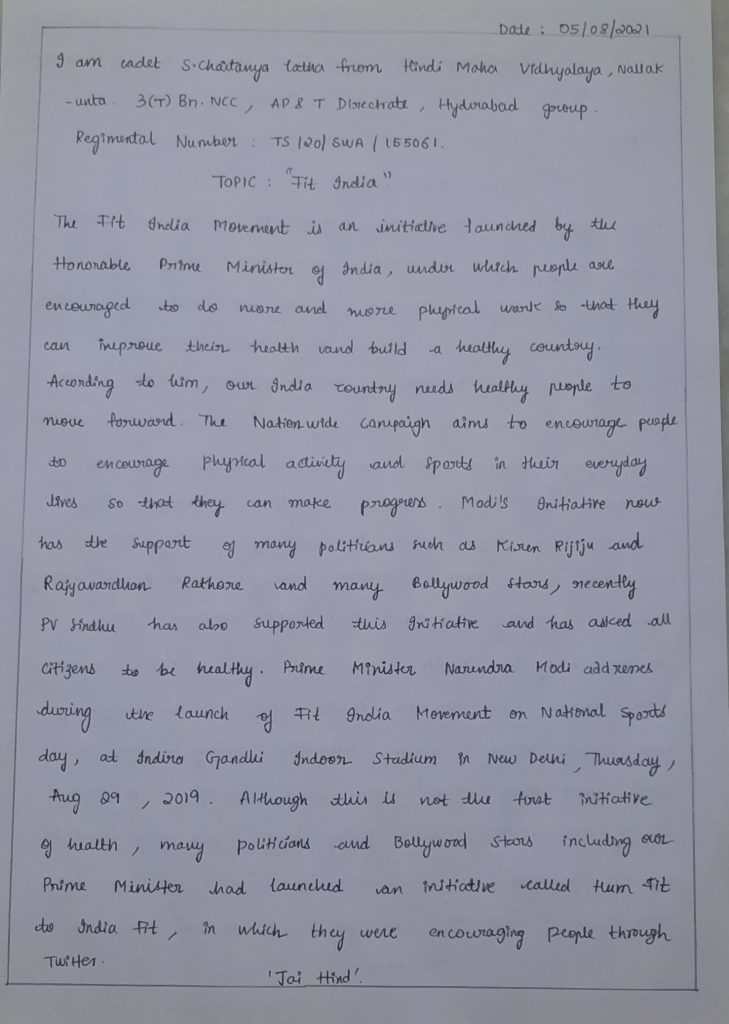 Date : 05/08/2021
I am cadet S.Chaitanya latha from Hindi Maha Vidhyalaya, Nallak
-unta. 3(T) Bn. NCC, AP & T Directrate, Hyderabad group.
Regimental Number : TS/20/SWA/155061.
TOPIC : "Fit India"
The Fit India Movement is an initiative launched by the
Honorable Prime Minister of India, under which people are
encouraged to do more and more physical work so that they
can improve their health and build a healthy country.
According to him, our India country needs healthy people to
move forward. The Nationwide campaign aims to encourage people
to encourage physical activity and sports in their everyday
lives so that they can make progress. Modi's Initiative now
has the support of many politicians such as Kiren Rijiju and
Rajyavardhan Rathore and many Bollywood stars, recently
PV Sindhu has also supported this Initiative and has asked all
citizens to be healthy. Prime Minister Narendra Modi addresses
during the launch of Fit India Movement on National Sports
day, at Indira Gandhi Indoor Stadium in New Delhi, Thursday,
Aug 29, 2019. Although this is not the first initiative
of health, many politicians and Bollywood stars including our
Prime Minister had launched an initiative called Hum Fit
to India Fit, in which they were encouraging people through
Twitter.
'Jai Hind'.